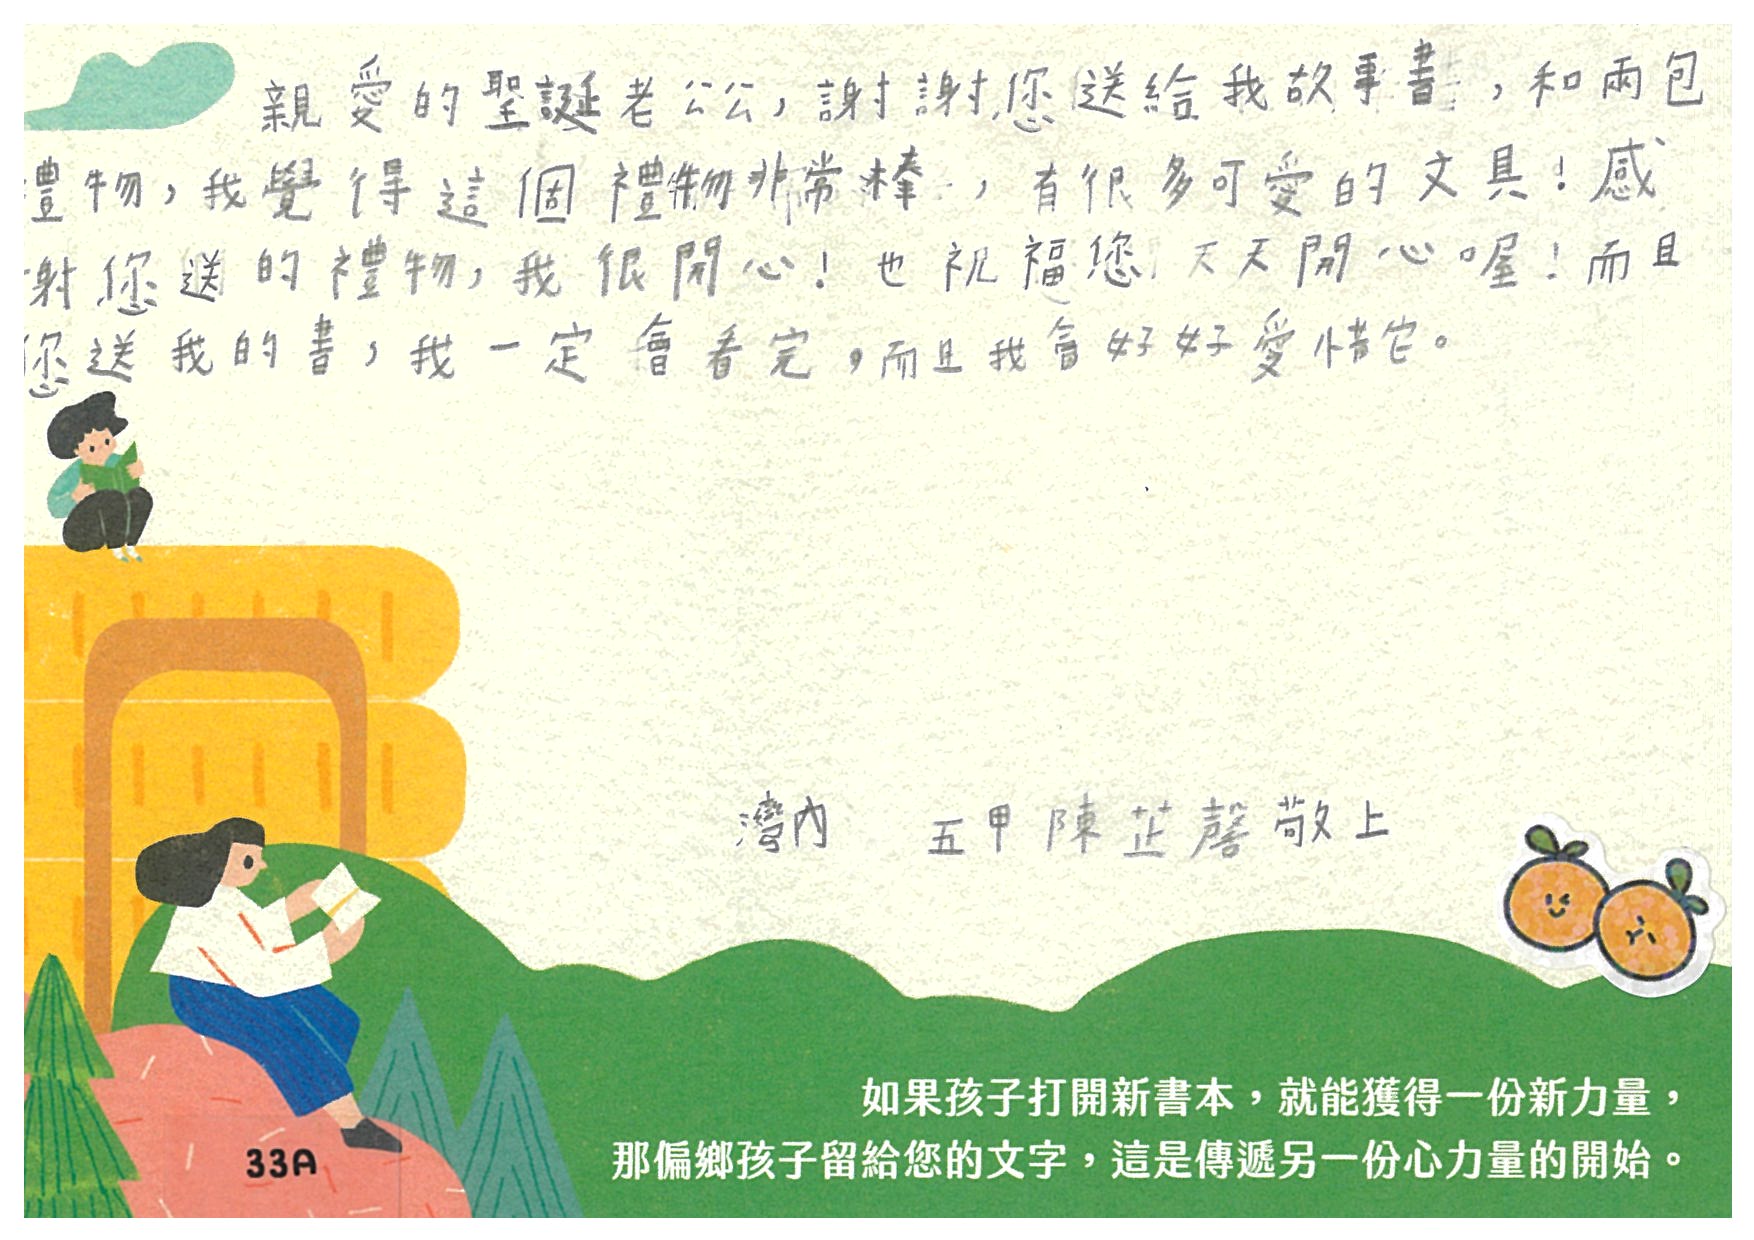 親愛的聖誕老公公，謝謝您送給我故事書，和兩包
禮物，我覺得這個禮物非常棒，有很多可愛的文具！感
謝您送的禮物，我很開心！也祝福您天天開心喔！而且
您送我的書，我一定會看完，而且我會好好愛惜它。
灣內 五甲陳芷馨敬上
如果孩子打開新書本，就能獲得一份新力量，
那偏鄉孩子留給您的文字，這是傳遞另一份心力量的開始。
33A